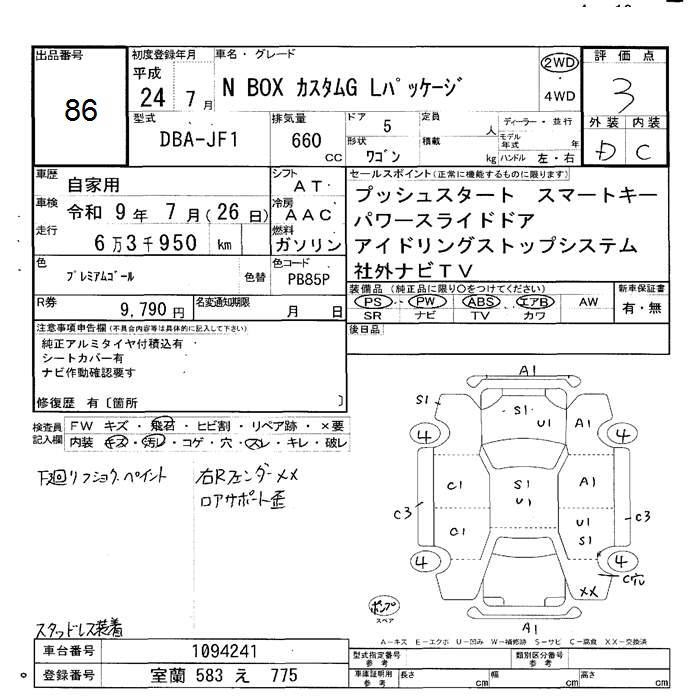 出品番号
86
初度登録年月
平成
24年 7月
車名・グレード
N BOX カスタムG Lパッケージ
2WD
4WD
評価点
3
外装 内装
D C
型式
DBA-JF1
排気量
660 CC
ドア 5
形状 ワゴン
定員 人
積載 kg
ディーラー・並行
モデル年式 年
ハンドル 左・右
車歴 自家用
車検 令和 9年 7月(26日)
走行 6万3千950 km
色 プレミアムゴール 色替
シフト AT
冷房 AAC
燃料 ガソリン
色コード PB85P
R券 9,790円
名変通知期限 月 日
セールスポイント(正常に機能するものに限ります)
プッシュスタート スマートキー
パワースライドドア
アイドリングストップシステム
社外ナビTV
装備品(純正品に限り〇をつけてください)
PS PW ABS エアB AW
SR ナビ TV カワ
新車保証書
有・無
後日品
注意事項申告欄(不具合内容等は具体的に記入して下さい)
純正アルミタイヤ付積込有
シートカバー有
ナビ作動確認要す
修復歴 有〔箇所 〕
検査員記入欄
FW キズ・飛石・ヒビ割・リペア跡・×要
内装 キズ・汚レ・コゲ・穴・スレ・キレ・破レ
下廻リフショク.ペイント
右Rフェンダー××
ロアサポート歪
スタッドレス装着
A1
S1
S1
U1
A1
4
4
C1
S1
U1
A1
C3
C3
C1
U1
S1
4
4
C穴
××
A1
ポンプ
スペア
A-キズ E-エクボ U-凹み W-補修跡 S-サビ C-腐食 XX-交換済
車台番号 1094241
登録番号 室蘭 583 え 775
型式指定番号 参考
類別区分番号 参考
車庫証明用 参考
長さ cm
幅 cm
高さ cm